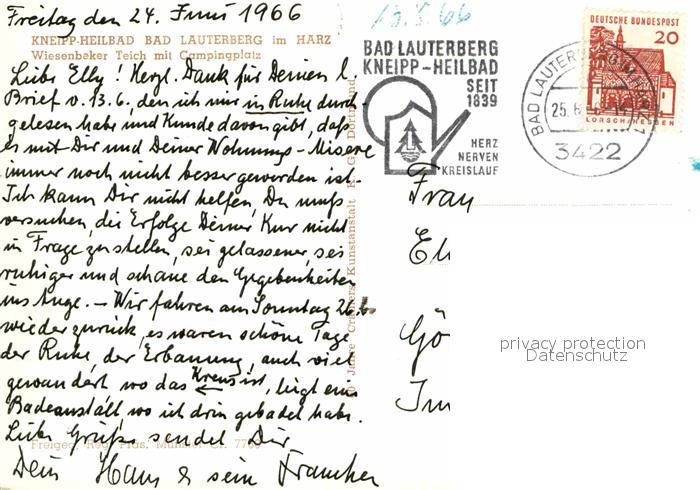 Freitag den 24. Juni 1966
KNEIPP-HEILBAD BAD LAUTERBERG im HARZ
Wiesenbeker Teich mit Campingplatz
Liebe Elly! Herzl. Dank für Deinen l.
Brief v. 13.6, den ich mir in Ruhe durch-
gelesen habe und Kunde davon gibt, daß
es mit Dir und Deiner Wohnungs-Misere
immer noch nicht besser geworden ist.
Ich kann Dir nicht helfen, Du mußt
versuchen, die Erfolge Deiner Kur nicht
in Frage zu stellen, sei gelassener, sei
ruhiger und schaue den Gegebenheiten
ins Auge. – Wir fahren am Sonntag 26.6.
wieder zurück, es waren schöne Tage
der Ruhe, der Erbauung, auch viel
gewandert, wo das Kreuz ist, liegt ein
Badeanstalt, wo ich drin gebadet habe.
Liebe Grüße sendet Dir
Dein Hans & sein Frauchen
Freigeg. Reg. Präs. Münster
Jahre Cramers Kunstanstalt K. G., Dortmund
15.8.66
BAD LAUTERBERG
KNEIPP-HEILBAD
SEIT
1839
HERZ
NERVEN
KREISLAUF
BAD LAUTERBERG
25.6.
3422
DEUTSCHE BUNDESPOST
20
LORSCH/HESSEN
Frau
El
Gö
Im
privacy protection
Datenschutz